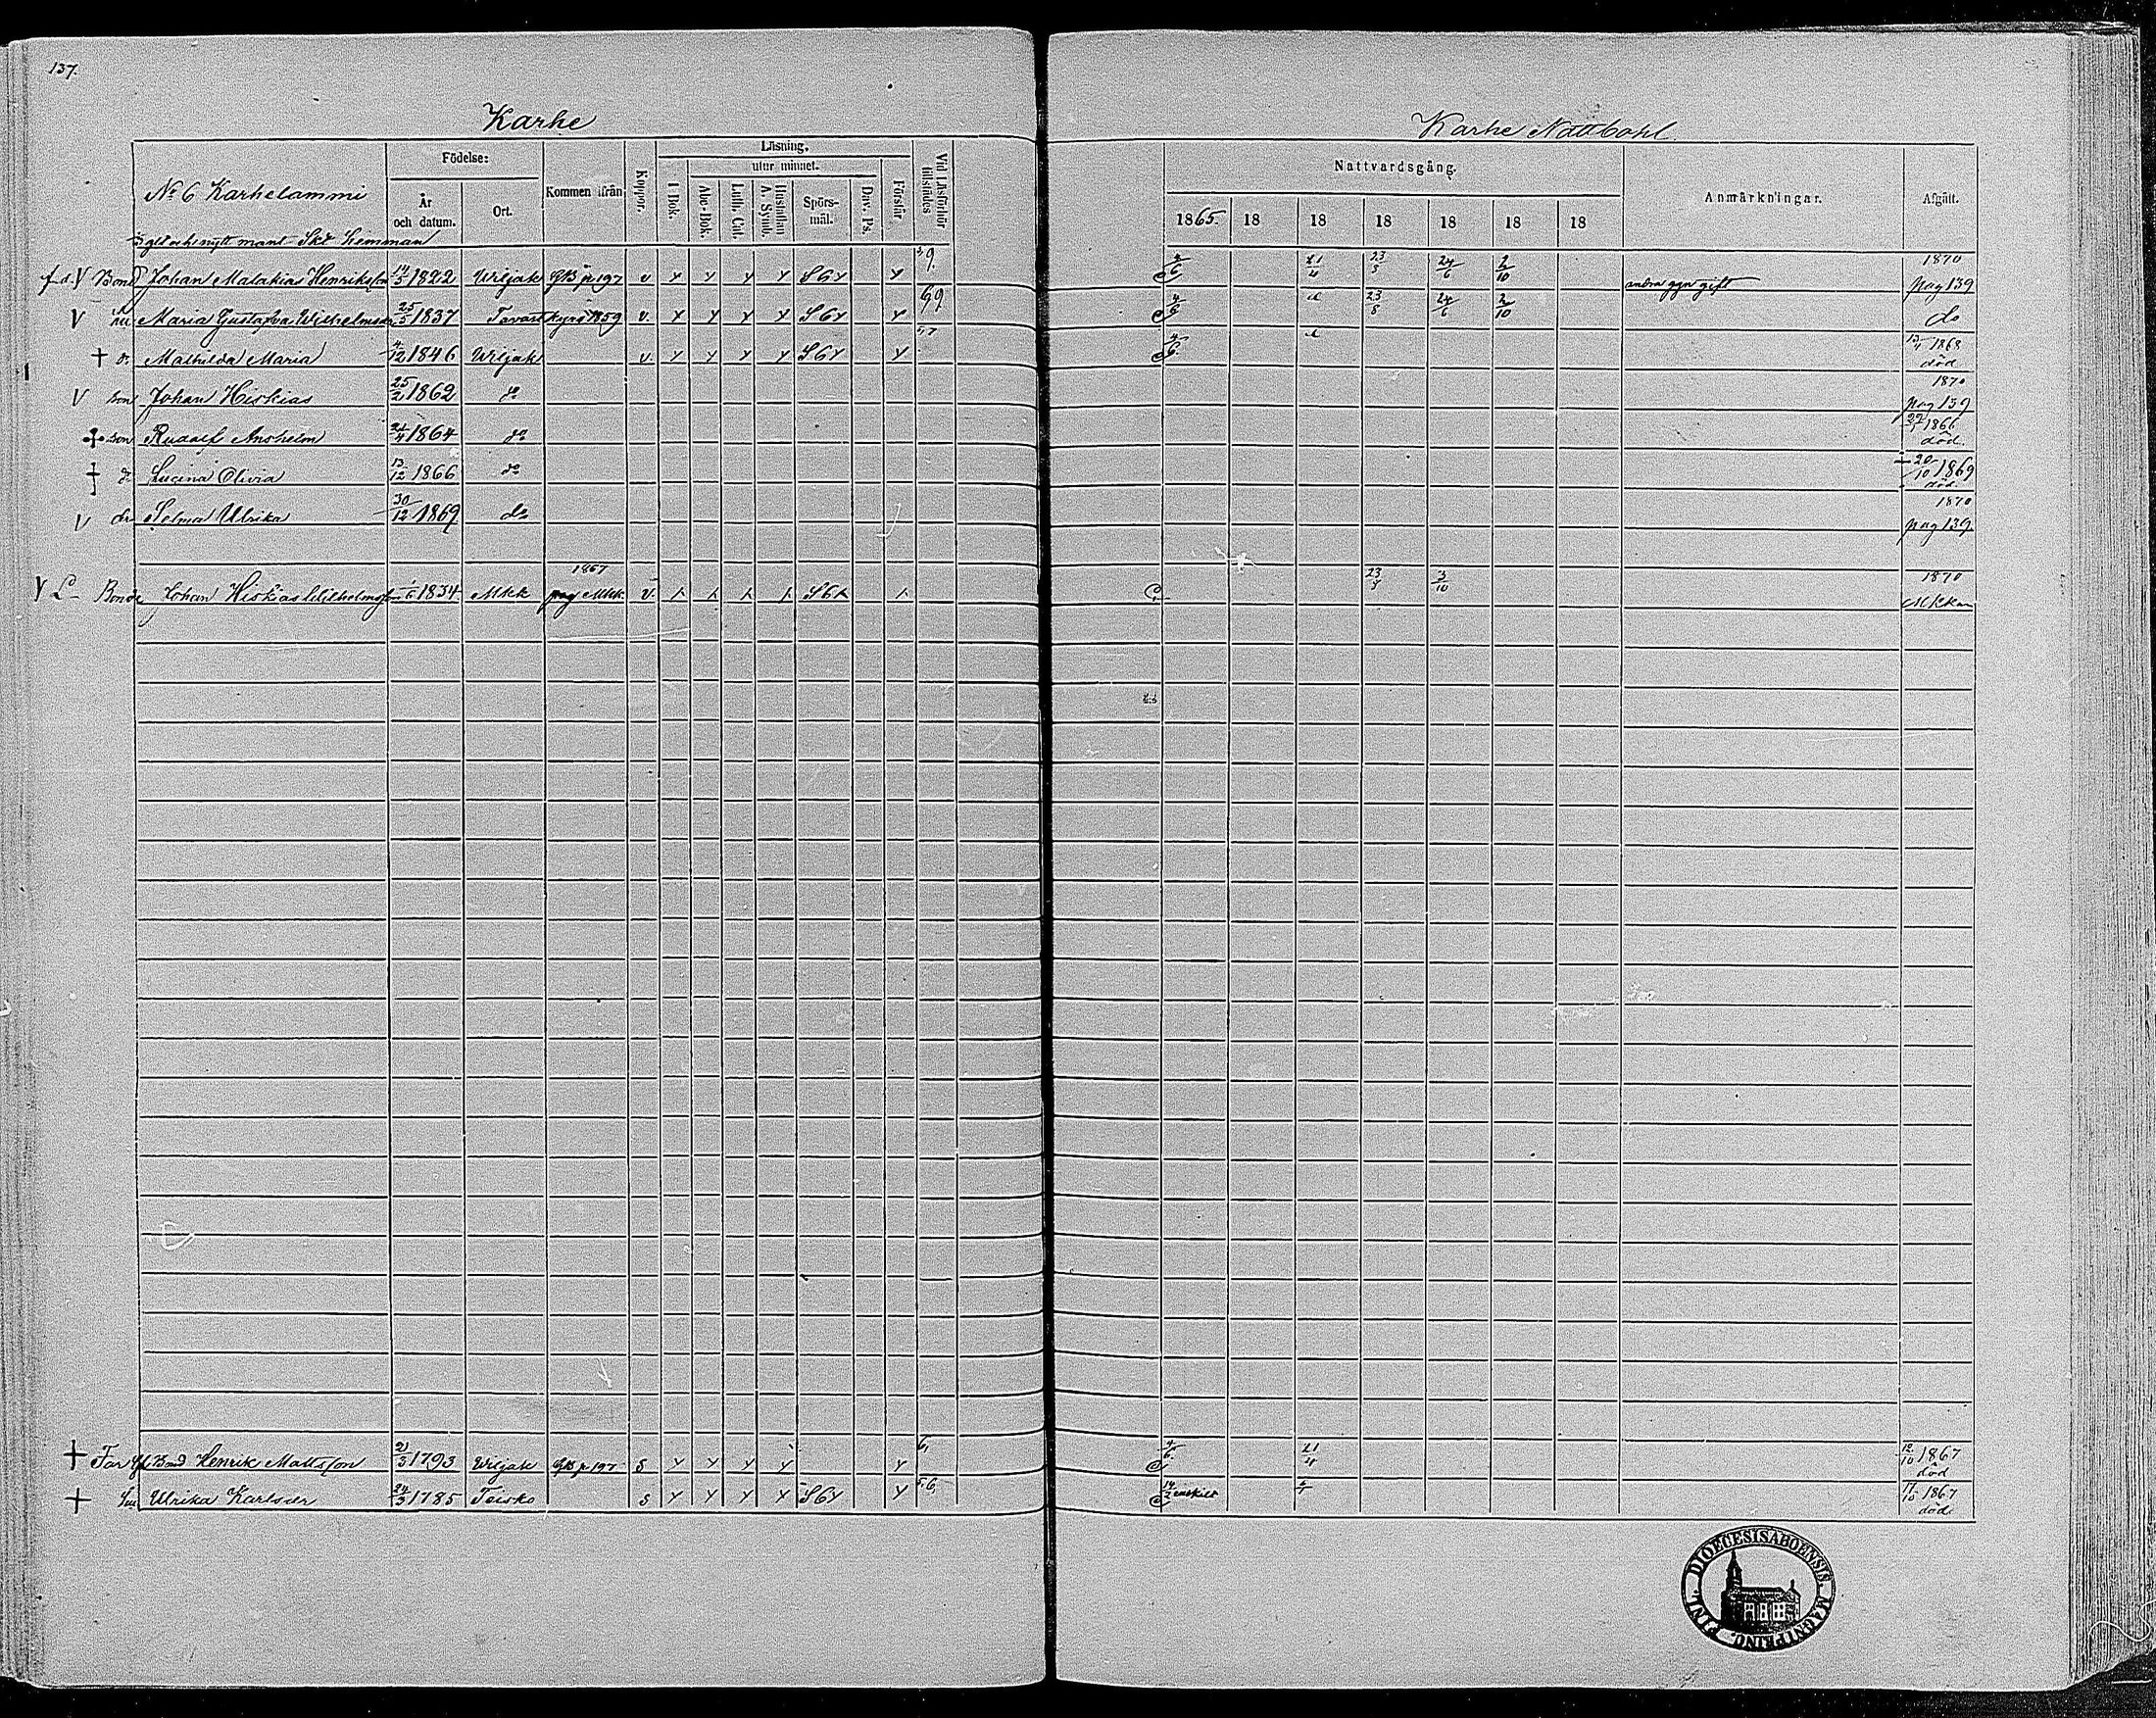 137.
Karhe
Karhe Nattbohl
Födelse:
Läsning.
utur minnet.
Nattvardsgång.
No 6 Karhelammi
År och datum.
Ort.
Kommen ifrån
Koppor.
I Bok.
Abc-Bok.
Luth. Cat.
Hustaflan A. Symb.
Spörs-mål.
Dav. Ps.
Förstår
Vid Läsförhör tillstädes
1865. 18 18 18 18 18 18
Anmärkningar.
Afgått.
mant. Skt hemman
f.d. V Bond Johan Malakias Henriksson 14/3 1822 Wiljak GB p 197 v Y Y Y Y S6Y Y 9. 4/6 21/4 23/8 24/6 2/10 andra ggn gift 1870 pag 139
V hu Maria Gustafva Wilhelmsdr 25/5 1837 Tavastkyrö 1859 v. Y Y Y Y S6Y Y 69 4/6 d 23/8 24/6 2/10 do
† dr. Mathilda Maria 4/12 1846 Wiljak v. Y Y Y Y S6Y Y 5,7 4/6. d 1868 död
V son Johan Hiskias 25/2 1862 do 1870 pag 139
† son Rudolf Anshelm 21/4 1864 do 1866 död.
† dr Lucina Olivia 13/12 1866 do 20/10 1869 död.
V dr Selma Ulrika 30/12 1869 do 1870 pag 139
V Bonde Johan Hiskias Wilhelmsson 1/6 1834 Mkk 1867 pag Mkk v. S6 23/8 3/10 1870 Mkk
† Far fd Bond Henrik Mattsson 2/3 1793 Wiljak GB p 197 s Y Y Y Y Y 6, 4/6. 21/4 12/10 1867 död
† hu Ulrika Karlsdr 24/3 1785 Teisko s Y Y Y Y S6Y Y 5.6, 14/2 enskilt 17/10 1867 död
FINL. DIOECESIS ABOENSIS. MAGNI PRINC.